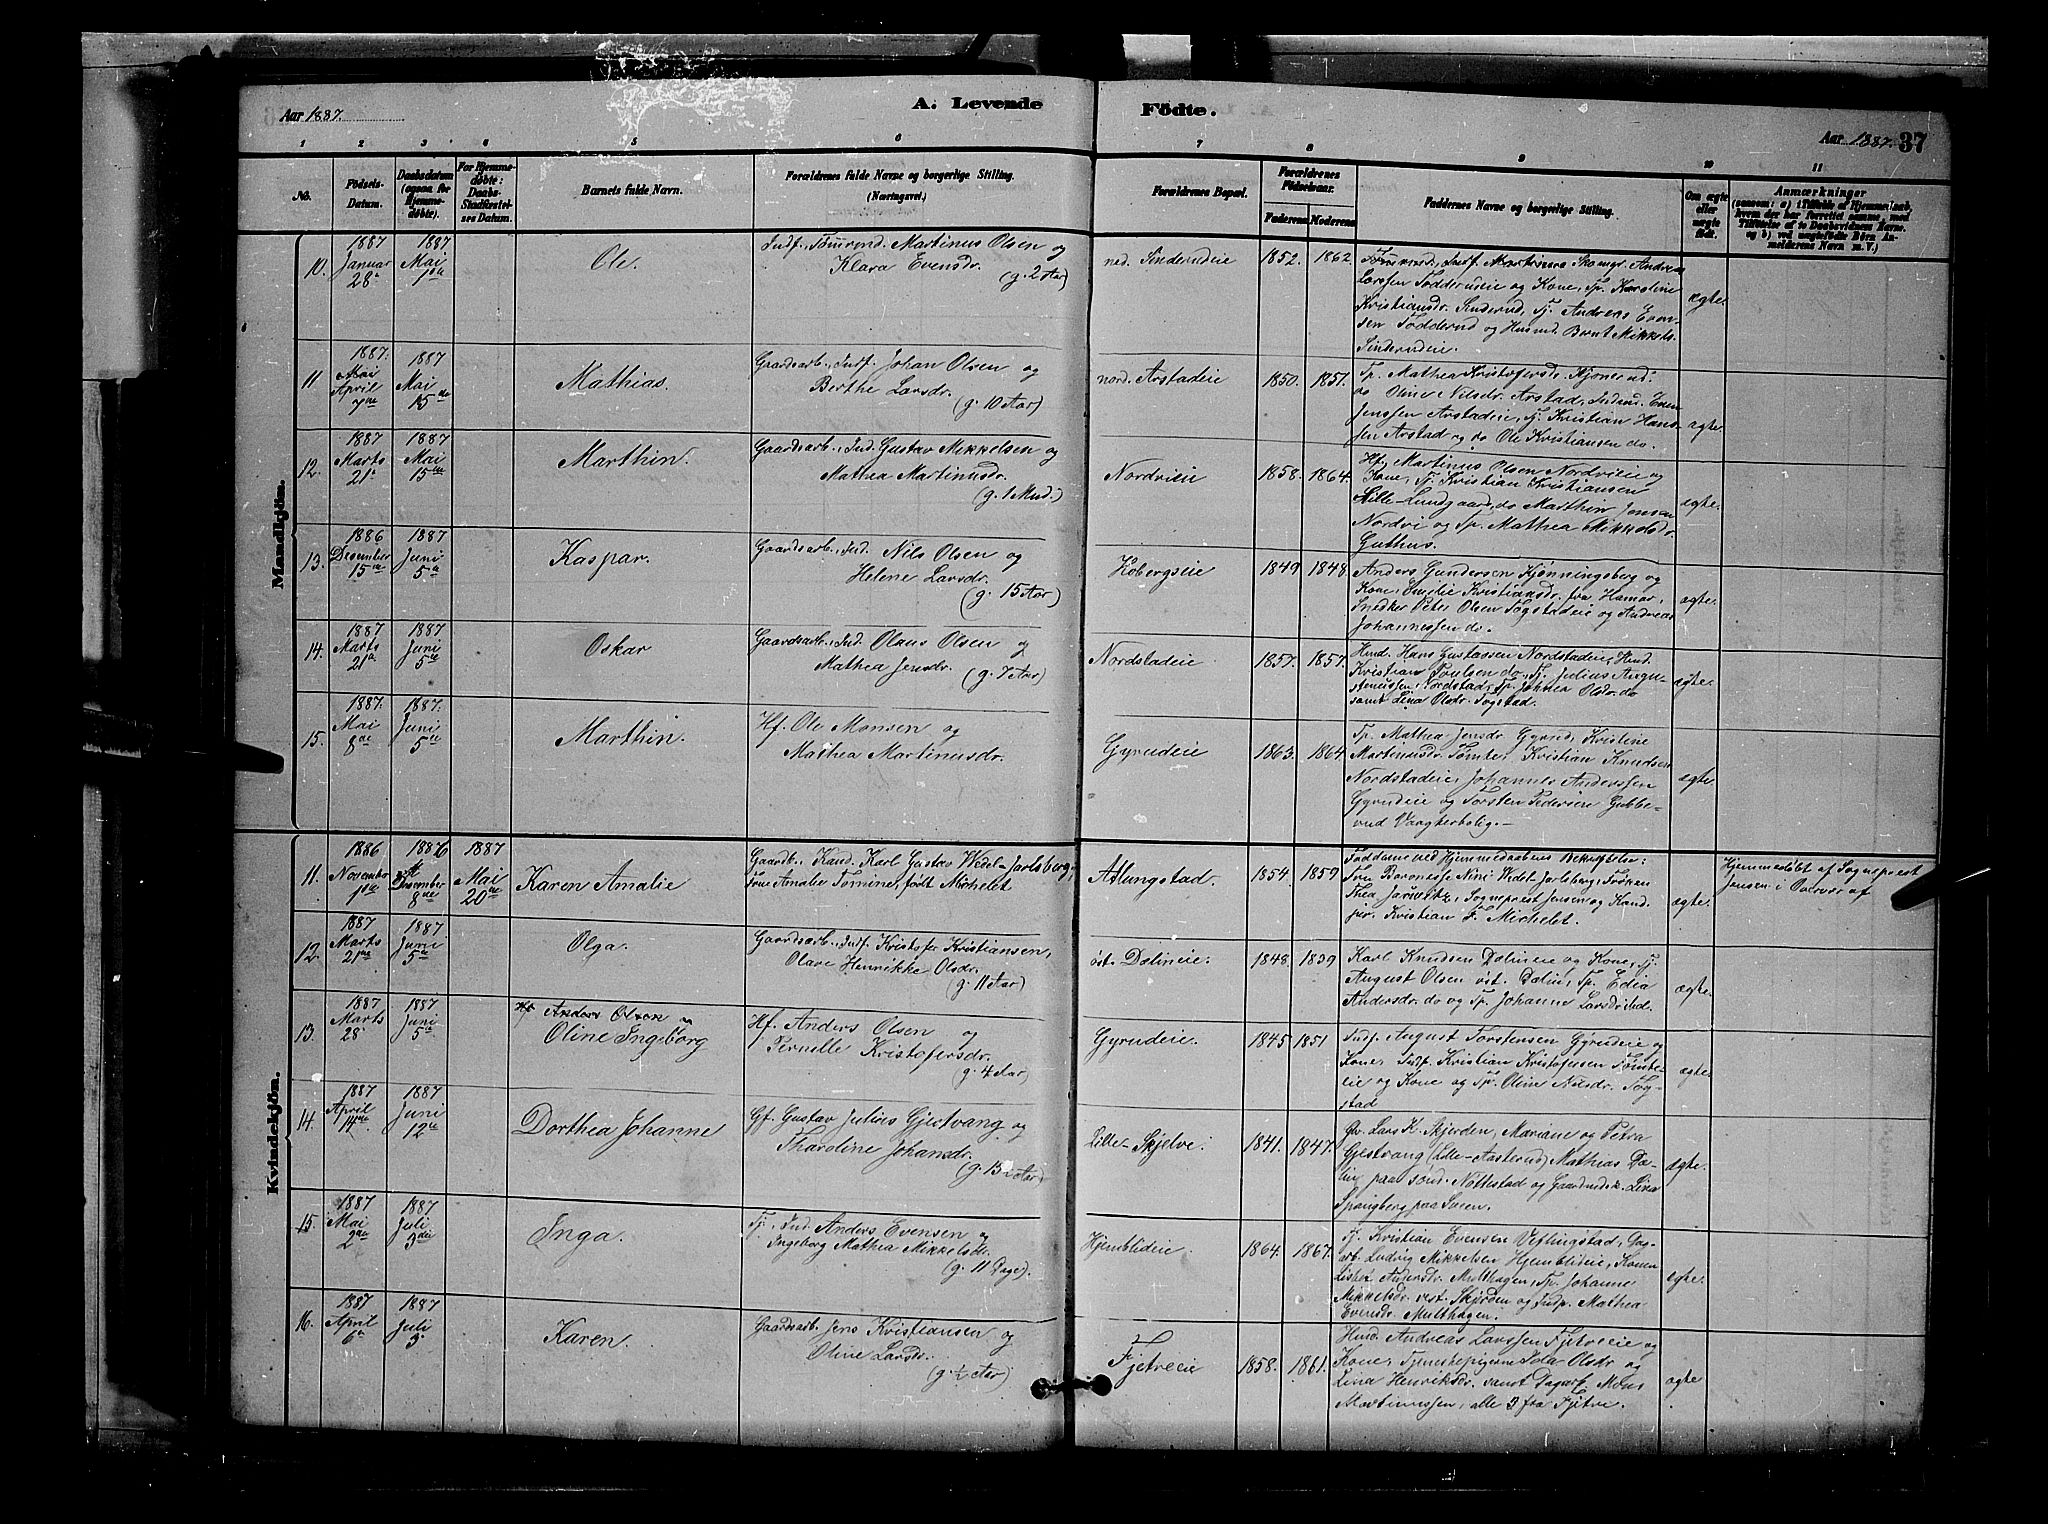 Aar 1887.
A. Levende
Födte.
Aar 1887. 37
1 2 3 4 5 6 7 8 9 10 11
No.
Födsels-Datum.
Daabsdatum (ogsaa for Hjemmedöbte).
For Hjemmedöbte: Daabs Stadfæstelses Datum.
Barnets fulde Navn.
Forældrenes fulde Navne og borgerlige Stilling. (Næringsvei.)
Forældrenes Bopæl.
Forældrenes Födselsaar.
Faderens. Moderens.
Faddernes Navne og borgerlige Stilling.
Om ægte eller uægte födt.
Anmærkninger
Mandkjön.
10. 1887 Januar 28de 1887 Mai 1ste
Ole.
Indf., Martinus Olsen og
Klara Evensdr.
(g. 2 Aar)
ned. Sinderudeie 1852. 1862.
Andreas
Larssen Fodderudeie og Kone, Tp. Karoline
Kristiansdr. Sinderud, Tj. Andreas Evensen Fodderud og Husmd. Bernt Mikkels.
Sinderudeie.
ægte.
11. 1887. Mai April 7de 1887 Mai 15de
Mathias.
Gaardsarb., Indf. Johan Olsen og
Berthe Larsdr.
(g. 10 Aar)
nord. Arstadeie 1850. 1851.
Tp. Mathea Kristofersdr. Kjonerud,
do Oline Nilsdr. Arstad, Indmd. Even
Jenssen Arstadeie, Tj. Kristian Hanssen Arstad og do Ole Kristiansen do.
ægte.
12. 1887 Marts 21de 1887 Mai 15de
Marthin.
Gaardsarb., Ind. Gustav Mikkelsen og
Mathea Martinusdr.
(g. 1 Mnd.)
Nordvieie 1858. 1864.
Hf. Martinus Olsen Nordvieie og
Kone, Tj. Kristian Kristiansen
Lille-Lundgaard, do Marthin Jensen
Nordvi og Tp. Mathea Mikkelsdr.
Guthus.
ægte.
13. 1886 Desember 15de 1887 Juni 5te
Kaspar.
Gaardsarb., Ind. Nils Olsen og
Helene Larsdr.
(g. 15 Aar)
Kobergseie 1849 1848.
Anders Gundersen Kjønningsberg og
Kone, Emelie Kristiansdr. fra Hamar,
Snedker Peter Olsen Togstadeie og Andreas
Johannessen do.
ægte.
14. 1887 Marts 21de 1887 Juni 5te
Oskar
Gaardsarb., Ind. Olaus Olsen og
Mathea Jensdr.
(g. 7 Aar)
Nordstadeie 1857. 1857.
Husmd. Hans Gustavsen Nordstadeie, Husmd.
Kristian Poulsen do, Tj. Julius Nordstad, Tp. Johnea Olsdr. do
samt Lina Olsdr. Togstad.
ægte.
15. 1887. Mai 8de 1887. Juni 5te
Marthin.
Hf. Ole Monsen og
Mathea Martinusdr.
Gyrudeie 1863. 1864.
Tp. Mathea Jensdr Gyrud, Kristine
Martinusdr. Tomte, Kristian Knudsen
Nordstadeie, Johannes Anderssen
Gyrudeie og Torsten Pedersen Gubberud Vaagterbolig.-
ægte.
Kvindekjön.
11. 1886 November 1ste 1886 Desember 8de 1887 Mai 20de
Karen Amalie
Gaardb., Kand. Karl Gustav Wedel-Jarlsberg,
Frue Amalie Tomine, født Michelet
Atlungstad. 1854. 1859
Fadderne ved Hjemmedaabens Bekræftelse:
Fru Baronesse Nini Wedel Jarlsberg, Frøken
Thea Sogneprest Jensen og Kand.
jur. Kristian F. Michelet.
ægte.
Hjemmedöbt af Sogneprest
Jensen i
12. 1887 Marts 21de 1887 Juni 5te
Olga.
Gaardsarb., Indf. Kristofer Kristiansen,
Olave Henrikke Olsdr.
(g. 11 Aar)
øst. Dælineie. 1848. 1839
Karl Knudsen Dælineie og Kone, Tj.
August Olsen øst. Dælin, Tp. Edia
Andersdr. do og Tp. Johanne Larsdr
ægte.
13. 1887 Marts 28 1887 Juni 5te
Hf. Anders Olsen og
Oline Ingeborg
Hf. Anders Olsen og
Pernelle Kristofersdr.
(g. 4 Aar)
Gyrudeie. 1845 1851
Indf. August Torstensen Gyrudeie og
Kone, Indf. Kristian Kristofersen Tomteeie og Kone og Tp. Oline Nilsdr. Togstad
ægte.
14. 1887 April 14de 1887 Juni 12te
Dorthea Johanne
Gf. Gustav Julius Gjestvang og
Tharoline Johansdr.
(g. 13½ Aar)
Lille-Skjelve. 1841. 1847.
Gb. Lars K. Skjerden, Mariane og Petra
Gjestvang (Lille-Aasterud) Mathias Dælin paa sönd. Nöttestad og Lina
Spangberg paa Soeen.
ægte.
15. 1887 Mai 2den 1887 Juli 3die
Inga.
Tj., Ind. Anders Evensen og
Ingeborg Mathea Mikkelsdr.
(g. 11 Dage).
Hjemblideie. 1864. 1867.
Tj. Kristian Evensen Veflingstad, Dagarb. Ludvig Mikkelsen Hjemblideie, Konen
Lisbet Andersdr. Mylthagen, Tp. Johanne
Mikkelsdr. vest. Skjerden og Indp. Mathea
Evensdr. Multhagen.
ægte.
16. 1887 April 6te 1887 Juli 3.
Karen.
Gaardsarb. Jens Kristiansen og
Oline Larsdr.
(g. ½ Aar)
Fjetreeie 1858. 1861.
Husmd. Andreas Larssen Fjetreeie og
Kone, Tjenestepigerne Ida Olsdr og
Lina Henriksdr. samt Dagarb. Mons
Martinussen, alle 3 fra Fjetre.
ægte.